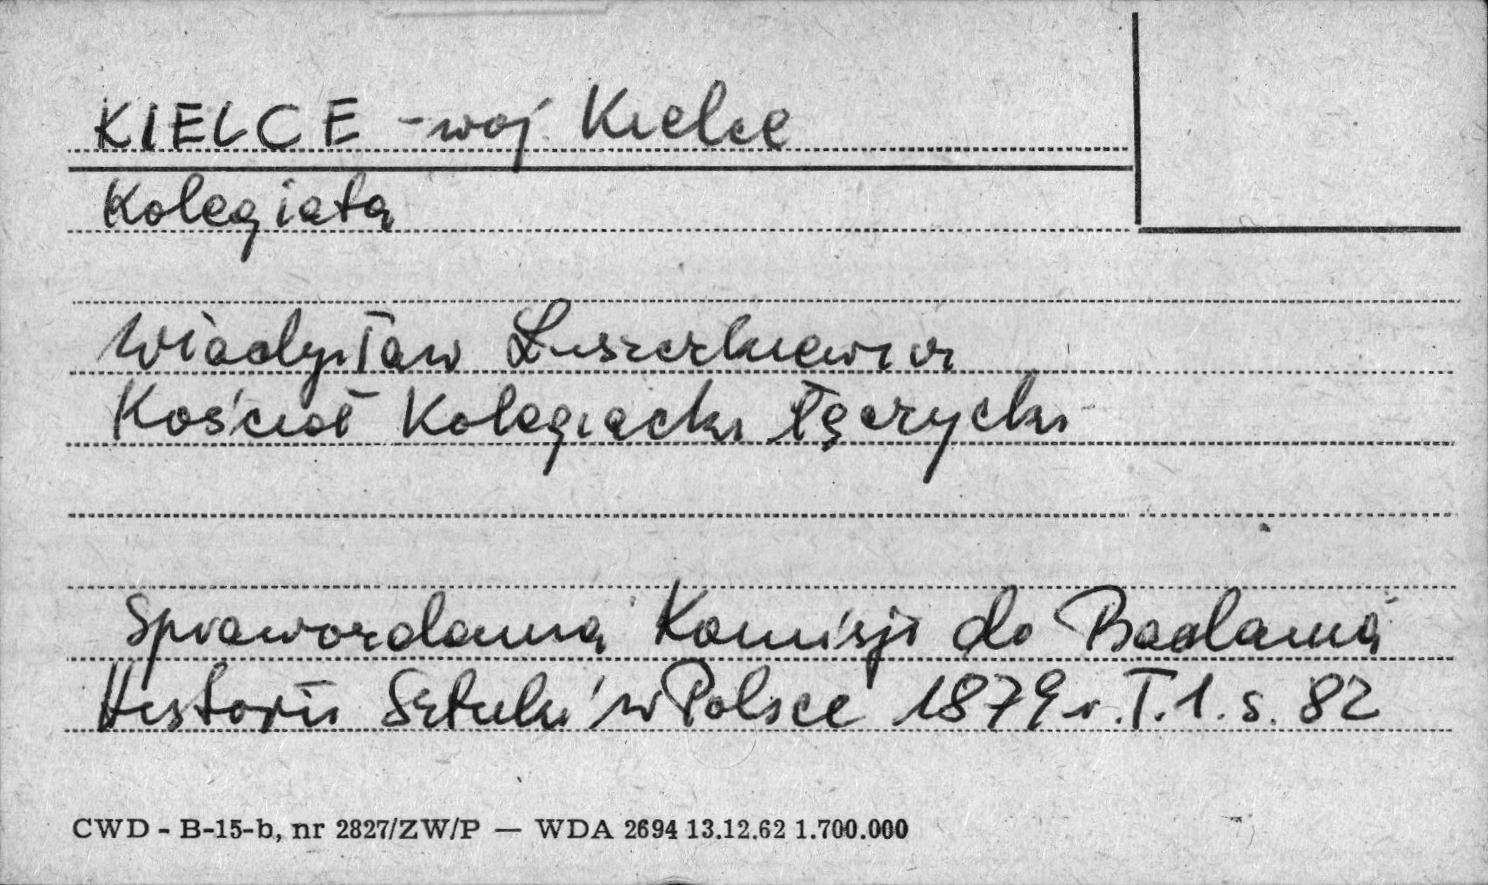 KIELCE - woj. Kielce
Kolegiata
Władysław Łuszczkiewicz
Kościół Kolegiacki łęczycki
Sprawozdania Komisji do Badania
Historii Sztuki w Polsce 1879 r. T. 1. s. 82
CWD - B-15-b, nr 2827/ZW/P — WDA 2694 13.12.62 1.700.000